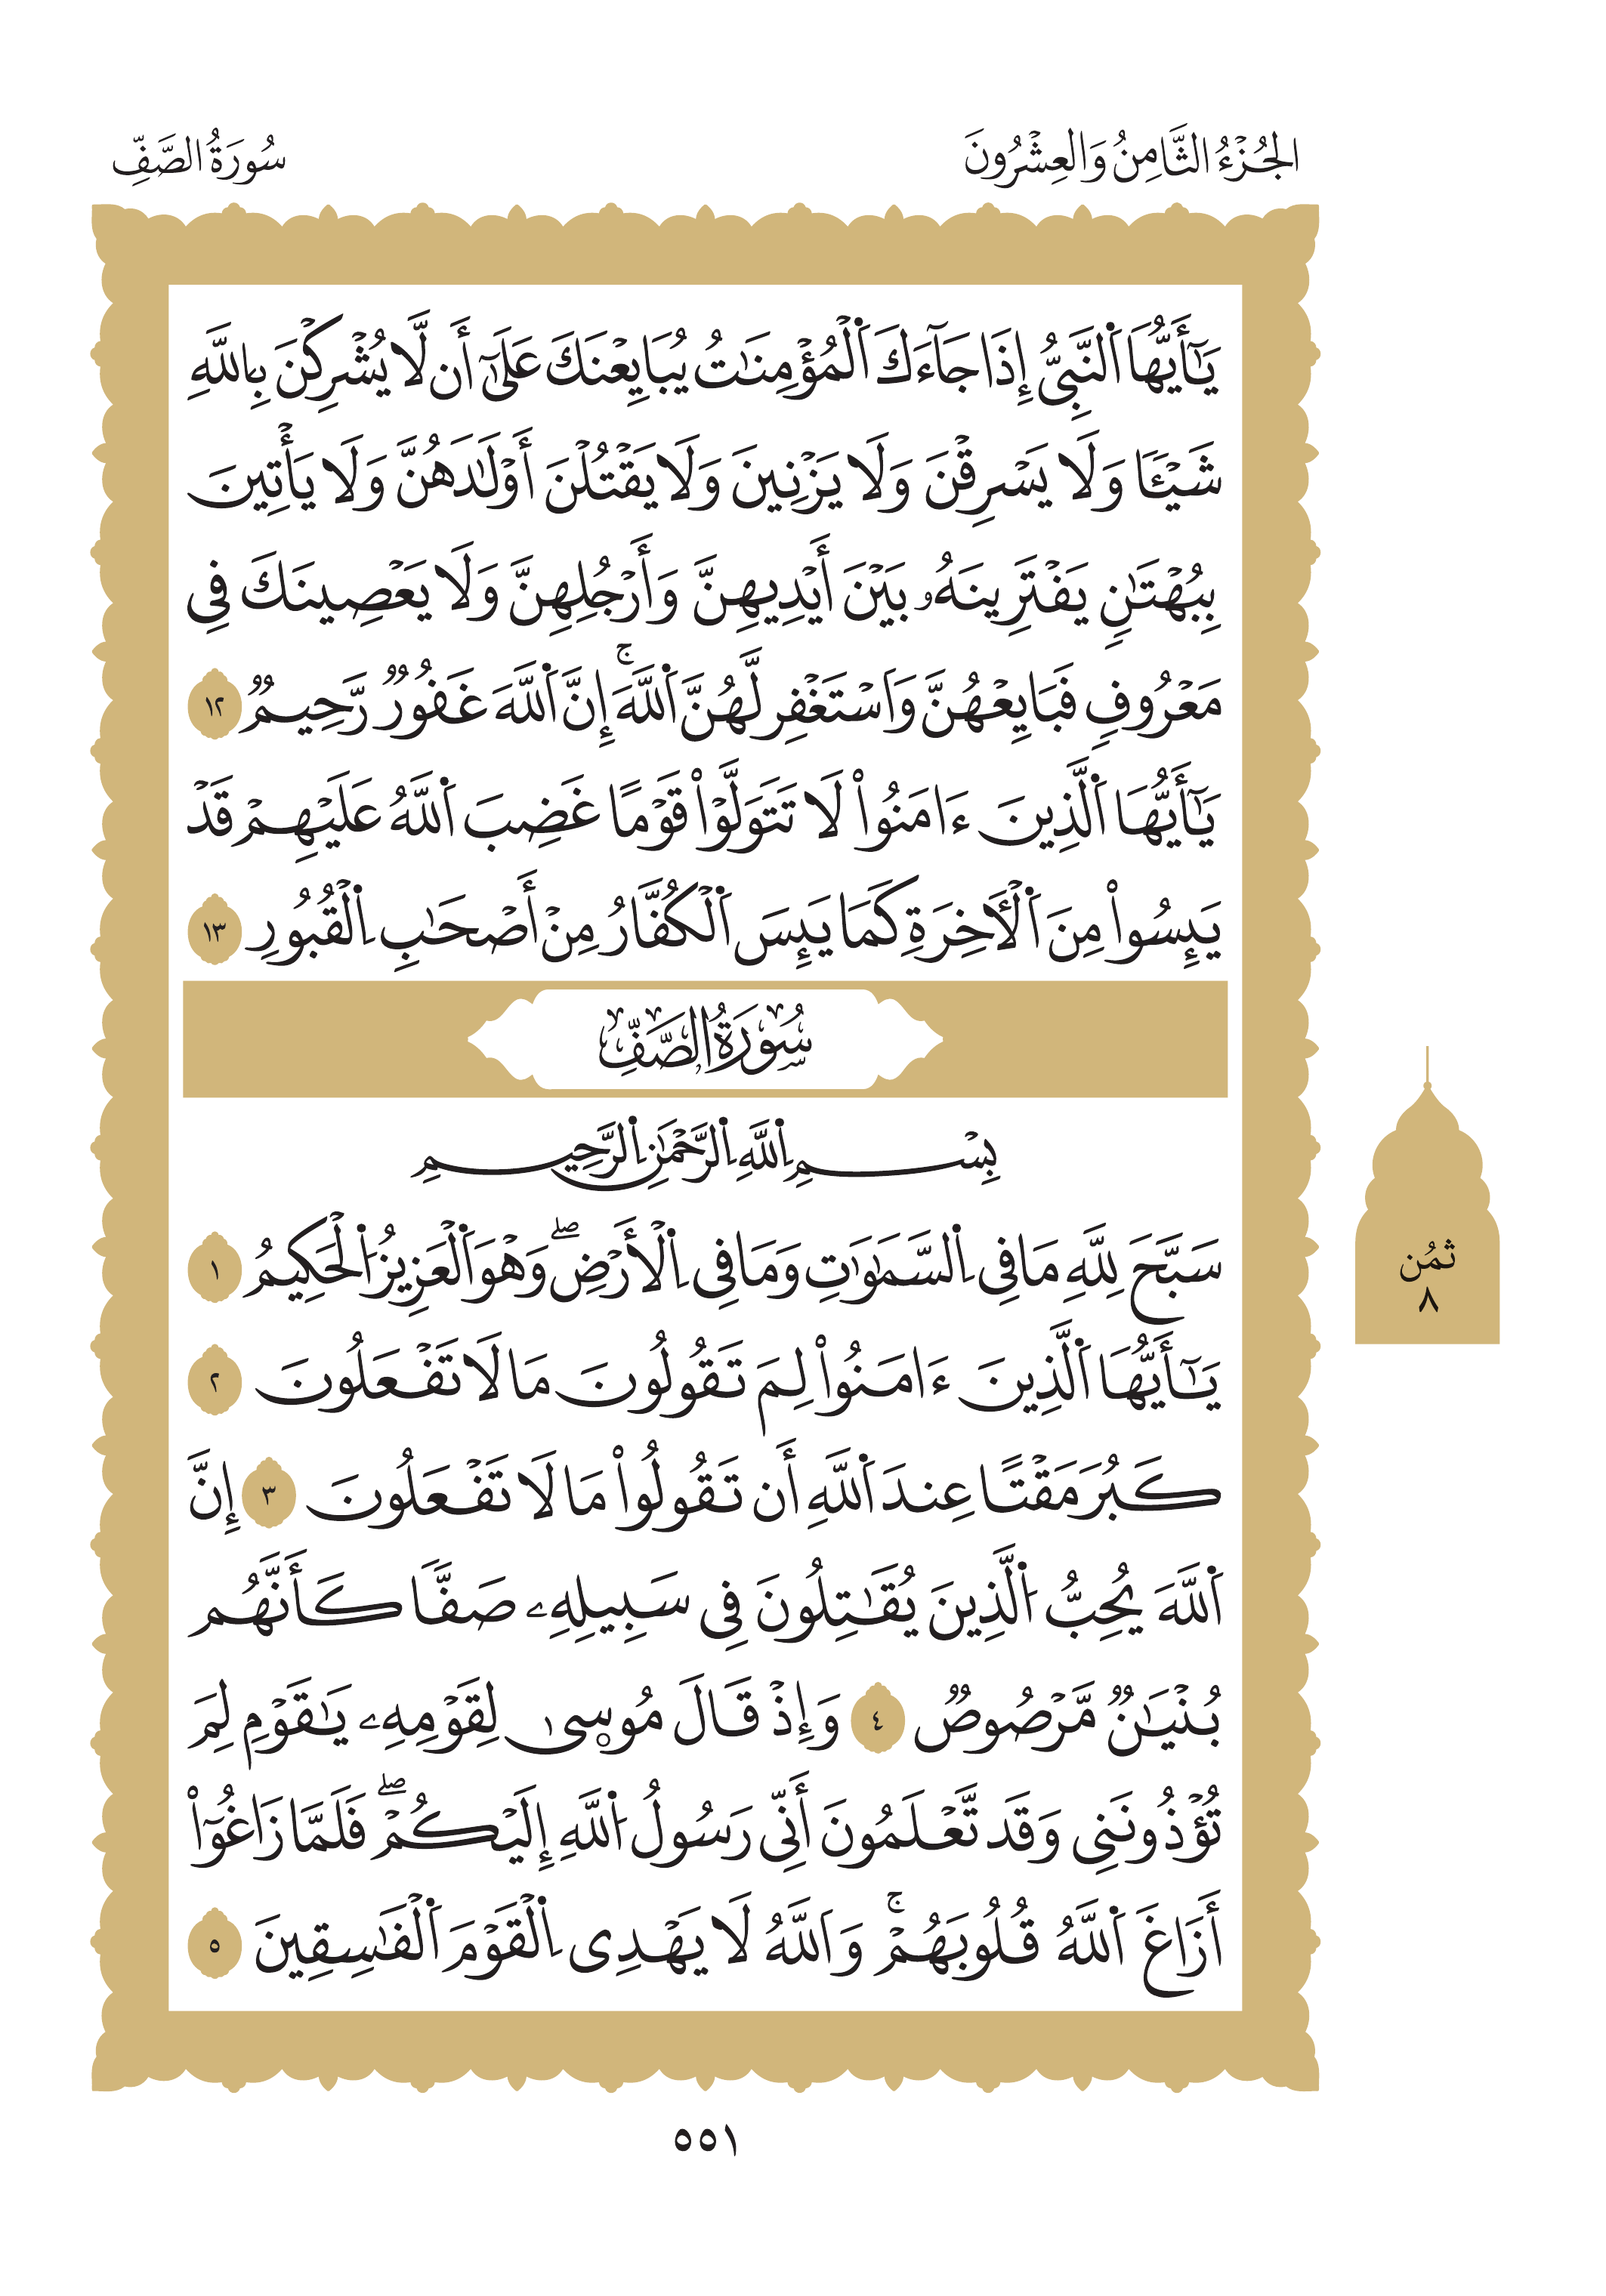 الجُزْءُ الثَّامِنُ وَالعِشْرُونَ
سُورَةُ الصَّفِّ
يَٰٓأَيُّهَا اَ۬لنَّبِيُّ إِذَا جَآءَكَ اَ۬لْمُؤْمِنَٰتُ يُبَايِعْنَكَ عَلَىٰٓ أَن لَّا يُشْرِكْنَ بِاللَّهِ
شَيْـًٔا وَلَا يَسْرِقْنَ وَلَا يَزْنِينَ وَلَا يَقْتُلْنَ أَوْلَٰدَهُنَّ وَلَا يَأْتِينَ
بِبُهْتَٰنٍ يَفْتَرِينَهُۥ بَيْنَ أَيْدِيهِنَّ وَأَرْجُلِهِنَّ وَلَا يَعْصِينَكَ فِي
مَعْرُوفٍ فَبَايِعْهُنَّ وَاَسْتَغْفِر لَّهُنَّ اَ۬للَّهَۚ إِنَّ اَ۬للَّهَ غَفُورٌ رَّحِيمٌ ١٢
يَٰٓأَيُّهَا اَ۬لَّذِينَ ءَامَنُواْ لَا تَتَوَلَّوْاْ قَوْمًا غَضِبَ اَ۬للَّهُ عَلَيْهِمْ قَدْ
يَئِسُواْ مِنَ اَ۬لْأَخِرَةِ كَمَا يَئِسَ اَ۬لْكُفَّارُ مِنْ أَصْحَٰبِ اِ۬لْقُبُورِ ١٣
سُورَةُ الصَّفِّ
بِسْمِ اِ۬للَّهِ اِ۬لرَّحْمَٰنِ اِ۬لرَّحِيمِ
سَبَّحَ لِلَّهِ مَا فِي اِ۬لسَّمَٰوَٰتِ وَمَا فِي اِ۬لْأَرْضِۖ وَهْوَ اَ۬لْعَزِيزُ اُ۬لْحَكِيمُ ١
يَٰٓأَيُّهَا اَ۬لَّذِينَ ءَامَنُواْ لِمَ تَقُولُونَ مَا لَا تَفْعَلُونَ ٢
كَبُرَ مَقْتًا عِندَ اَ۬للَّهِ أَن تَقُولُواْ مَا لَا تَفْعَلُونَ ٣ إِنَّ
اَ۬للَّهَ يُحِبُّ اُ۬لَّذِينَ يُقَٰتِلُونَ فِي سَبِيلِهِۦ صَفًّا كَأَنَّهُم
بُنْيَٰنٌ مَّرْصُوصٌ ٤ وَإِذْ قَالَ مُوسۭىٰ لِقَوْمِهِۦ يَٰقَوْمِ لِمَ
تُؤْذُونَنِي وَقَد تَّعْلَمُونَ أَنِّي رَسُولُ اُ۬للَّهِ إِلَيْكُمْۖ فَلَمَّا زَاغُوٓاْ
أَزَاغَ اَ۬للَّهُ قُلُوبَهُمْۚ وَاَللَّهُ لَا يَهْدِي اِ۬لْقَوْمَ اَ۬لْفَٰسِقِينَ ٥
ثمُن
٨
٥٥١